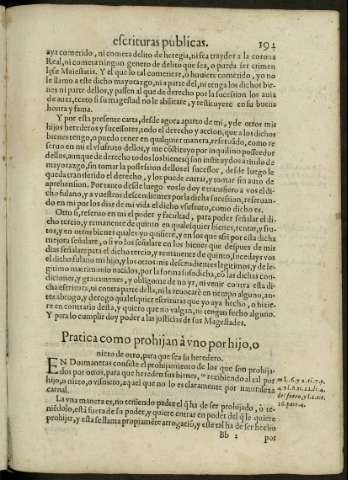 escrituras publicas. 194
aya cometido, ni cometa delito de heregia, ni sea traydor a la corona
Real, ni cometa ningun genero de delito que sea, o pueda ser crimen
lęse Maiestatis. Y el que lo tal cometiere, ò huviere cometido, yo no
le llamo a este dicho mayorazgo, ni a parte del, ni tenga los dichos bie-
nes ni parte dellos, y passen al que de derecho por la sucession los auia
de auer, excepto si su magestad no le abilitare, y restituyere en su buena
honra y fama.
Y por esta presente carta, desde agora aparto de mi, y de otros mis
hijos herederos y sucessores, todo el derecho y accion, que a los dichos
bienes tengo, o puedo tener en qualquier manera, reseruado, como re
seruo en mi el vsufruto dellos, y me cõstituyo por inquilino posseedor
dellos, aunque de derecho todos los bienes
mayorazgo, sin tomar la possession dellos el sucessor, desde luego le
queda transferido el derecho, y los puede entrar, y tomar sin auto de
aprehension. Por tanto desde luego
cho fulano, y a vuestros descendientes por la dicha sucession, reseruan-
do en mi por los dias de mi vida el dicho vsufruto, como dicho es.
Otro si, reseruo en mi el poder y facultad, para poder señalar el di-
cho tercio, y remanente de quinto en qualesquier bienes, rentas, y fru-
tos, y en otros bienes quales yo quisiere, y en los que assi por esta dicha
mejora señalare, o si yo los señalare en los bienes que despues de mis
dias señalare para el dicho tercio, y remanente de quinto, sucedays vos
el dicho fulano mi hijo, y los otros mis descendientes legitimos, y de le-
gitimo matrimonio nacidos, por la forma susodicha, cõ las dichas con-
diciones, y grauamenes, y obligome de no yr, ni venir contra esta di-
cha escritura, ni contra parte della, ni la reuocarè en tiempo alguno, an-
tes abrogo, y derogo qualesquier escrituras que yo aya hecho, o hizie-
re en contrario desta, y quiero que no valgan, ni tengan fecho alguno.
Y para lo cumplir doy poder a las justicias de sus Magestades.
Pratica como prohijan à vno por hijo, o
nieto de otro, para que sea su heredero.
EN Dos maneras consiste el prohijamiento de los que son prohija-
dos por otros, para que hereden sus bienes, recibiendo al tal por
hijo, o nieto, o visnieto, aquel que no lo es claramente por naturaleza
carnal.
La vna manera es, no teniendo padre el q̃ ha de ser prohijado, o te-
niẽdolo, està fuera de su poder, y quiere entrar en poder del q̃ le quiere
prohijar, y esta se llama propriamẽte arrogaciõ, y este tal ha de ser hecho
Bb 2 por